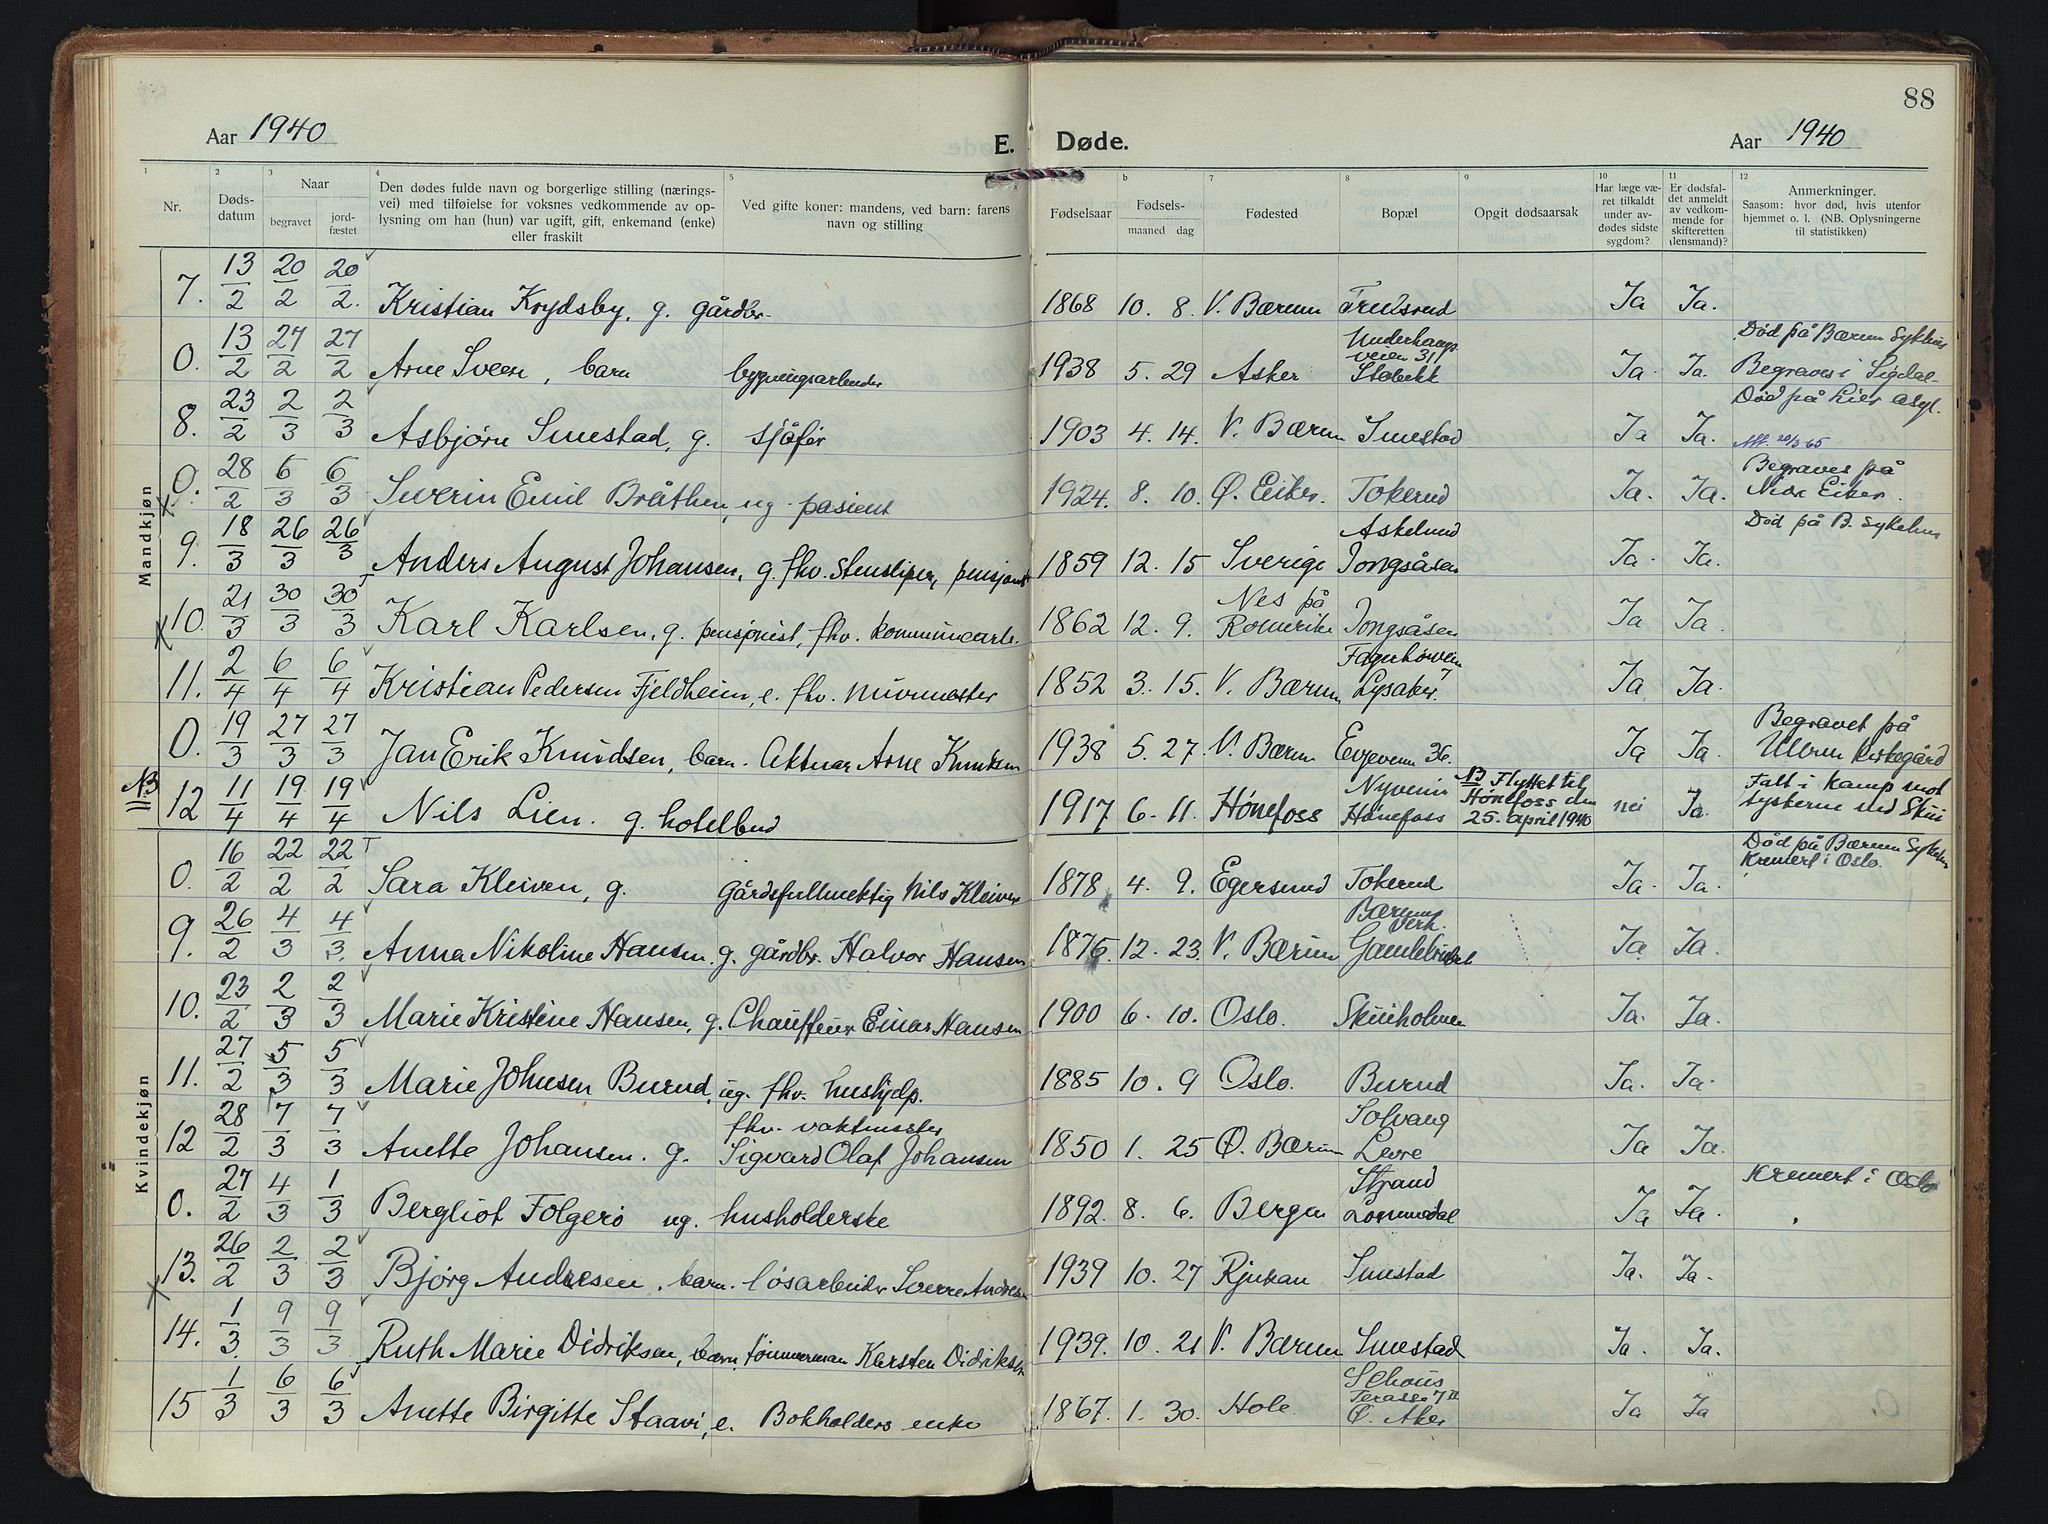 88
Aar 1940
E. Døde.
Aar 1940
1 2 3 4 5 6 b 7 8 9 10 11 12
Nr.
Døds-
datum
Naar
begravet
jord-
fæstet
Den dødes fulde navn og borgerlige stilling (nærings-
vei) med tilføielse for voksnes vedkommende av op-
lysning om han (hun) var ugift, gift, enkemand (enke)
eller fraskilt
Ved gifte koner: mandens, ved barn: farens
navn og stilling
Fødselsaar
Fødsels-
maaned dag
Fødested
Bopæl
Opgit dødsaarsak
Har læge væ-
ret tilkaldt
under av-
dødes sidste
sygdom?
Er dødsfal-
det anmeldt
av vedkom-
mende for
skifteretten
(lensmand)?
Anmerkninger.
Saasom: hvor død, hvis utenfor
hjemmet o. l. (NB. Oplysningerne
til statistikken)
Mandkjøn
7. 13/2 20/2 20/2. Kristian Krydsby, g. gårdbr. 1868 10. 8. V. Bærum Ja Ja.
Død på Bærum Sykehus
0. 13/2 27/2 27/2 Arne Sveen, barn bygningsarbeider 1938 5. 29 Asker Underhaugs-
veien 31
Stabekk Ja. Ja. Begraves i Sigdal-
Død på Lier asyl.
8. 23/2 2/3 2/3 Asbjørn Smestad, g. sjåfør 1903 4. 14. V. Bærum Smestad Ja Ja. Att. 20/3 65
0. 28/2 6/3 6/3 Severin Emil Bråthen, ug. pasient 1924. 8. 10. Ø. Eiker. Tokerud Ja. Ja. Begraves på
Nedr Eiker.
Død på B. Sykehus
9. 18/3 26/3 26/3 Anders August Johansen, g. fhv. stensliper, pensjonist 1859 12. 15 Sverige Askelund
Jongsåsen Ja. Ja.
x 10. 21/3 30/3 30/3 Karl Karlsen, g. pensjonist, fhv. kommunearb. 1862 12. 9. Nes på
Romerike Jongsåsen Ja Ja.
11. 2/4 6/4 6/4 Kristian Pedersen Fjeldheim, e. fhv. murmester 1852 3. 15. V. Bærum Lysaker. Ja Ja.
0. 19/3 27/3 27/3 Jan Erik Knudsen, barn. Aktuar Arne Knudsen 1938 5. 27 V. Bærum Evjeveien 36. Ja Ja. Begravet på
Ullern kirkegård
NB 12 11/4 19/4 19/4 Nils Lien. g. hotelbud 1917 6. 11. Hønefoss Nyveien
Hønefoss NB Flyttet til
Hønefoss den
25. april 1940 nei Ja. Falt i kamp mot
tyskerne ved Skui
Kvindekjøn
0. 16/2 22/2 22/2 Sara Kleiven, g. gårdsfullmektig Nils Kleiven 1878 4. 9. Egersund Tokerud Ja. Ja. Død på Bærum Sykehus
Kremert i Oslo.
9. 26/2 4/3 4/3. Anna Nikoline Hansen. g. gårdbr. Halvor Hansen 1876. 12. 23. V. Bærum Bærums
Verk.
Ja Ja.
10. 23/2 2/3 2/3 Marie Kristine Hansen, g. Chauffeur Einar Hansen 1900 6. 10. Oslo. Skuiholmen Ja. Ja.
11. 27/2 5/3 5/3 Marie Johnsen Burud, ug. fhv. hushjelp. 1885 10. 9 Oslo. Burud Ja. Ja.
12 28/2 7/3 7/3 Anette Johansen. g. fhv. vaktmester
Sigvard Olaf Johansen 1850 1. 25 Ø. Bærum Solvang
Levre Ja Ja.
0. 27/2 4/3 1/3 Bergliot Folgerø ug. husholderske 1892. 8. 6. Bergen Strand
Lommedal Ja Ja. Kremert i Oslo
x 13. 26/2 2/3 2/3 Bjørg Andresen. barn. løsarbeider Sverre Andresen 1939 10. 27 Rjukan Smestad Ja. Ja.
14. 1/3. 9/3 9/3 Ruth Marie Didriksen, barn tømmerman Karsten Didriksen 1939. 10. 21 V. Bærum Smestad Ja. Ja.
15 1/3 6/3 6/3 Anette Birgitte Staavi, e. Bokholders enke 1867. 1. 30. Hole Schous
Terasse 7 II
Ø. Aker Ja Ja